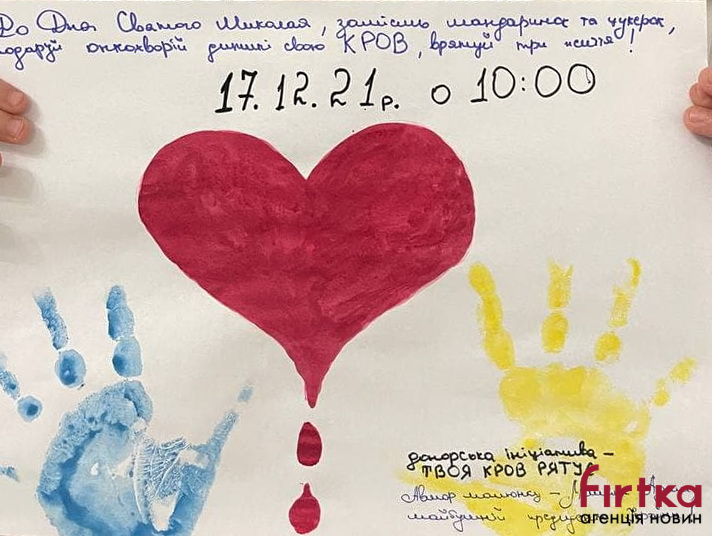 До Дня Святого Миколая, замість мандаринок та цукерок,
подаруй онкохворій дитині свою КРОВ, врятуй три життя!
17.12.21р. о 10:00
донорська ініціатива –
ТВОЯ КРОВ РЯТУЄ
Автор малюнку –
майбутній
firtka
агенція новин